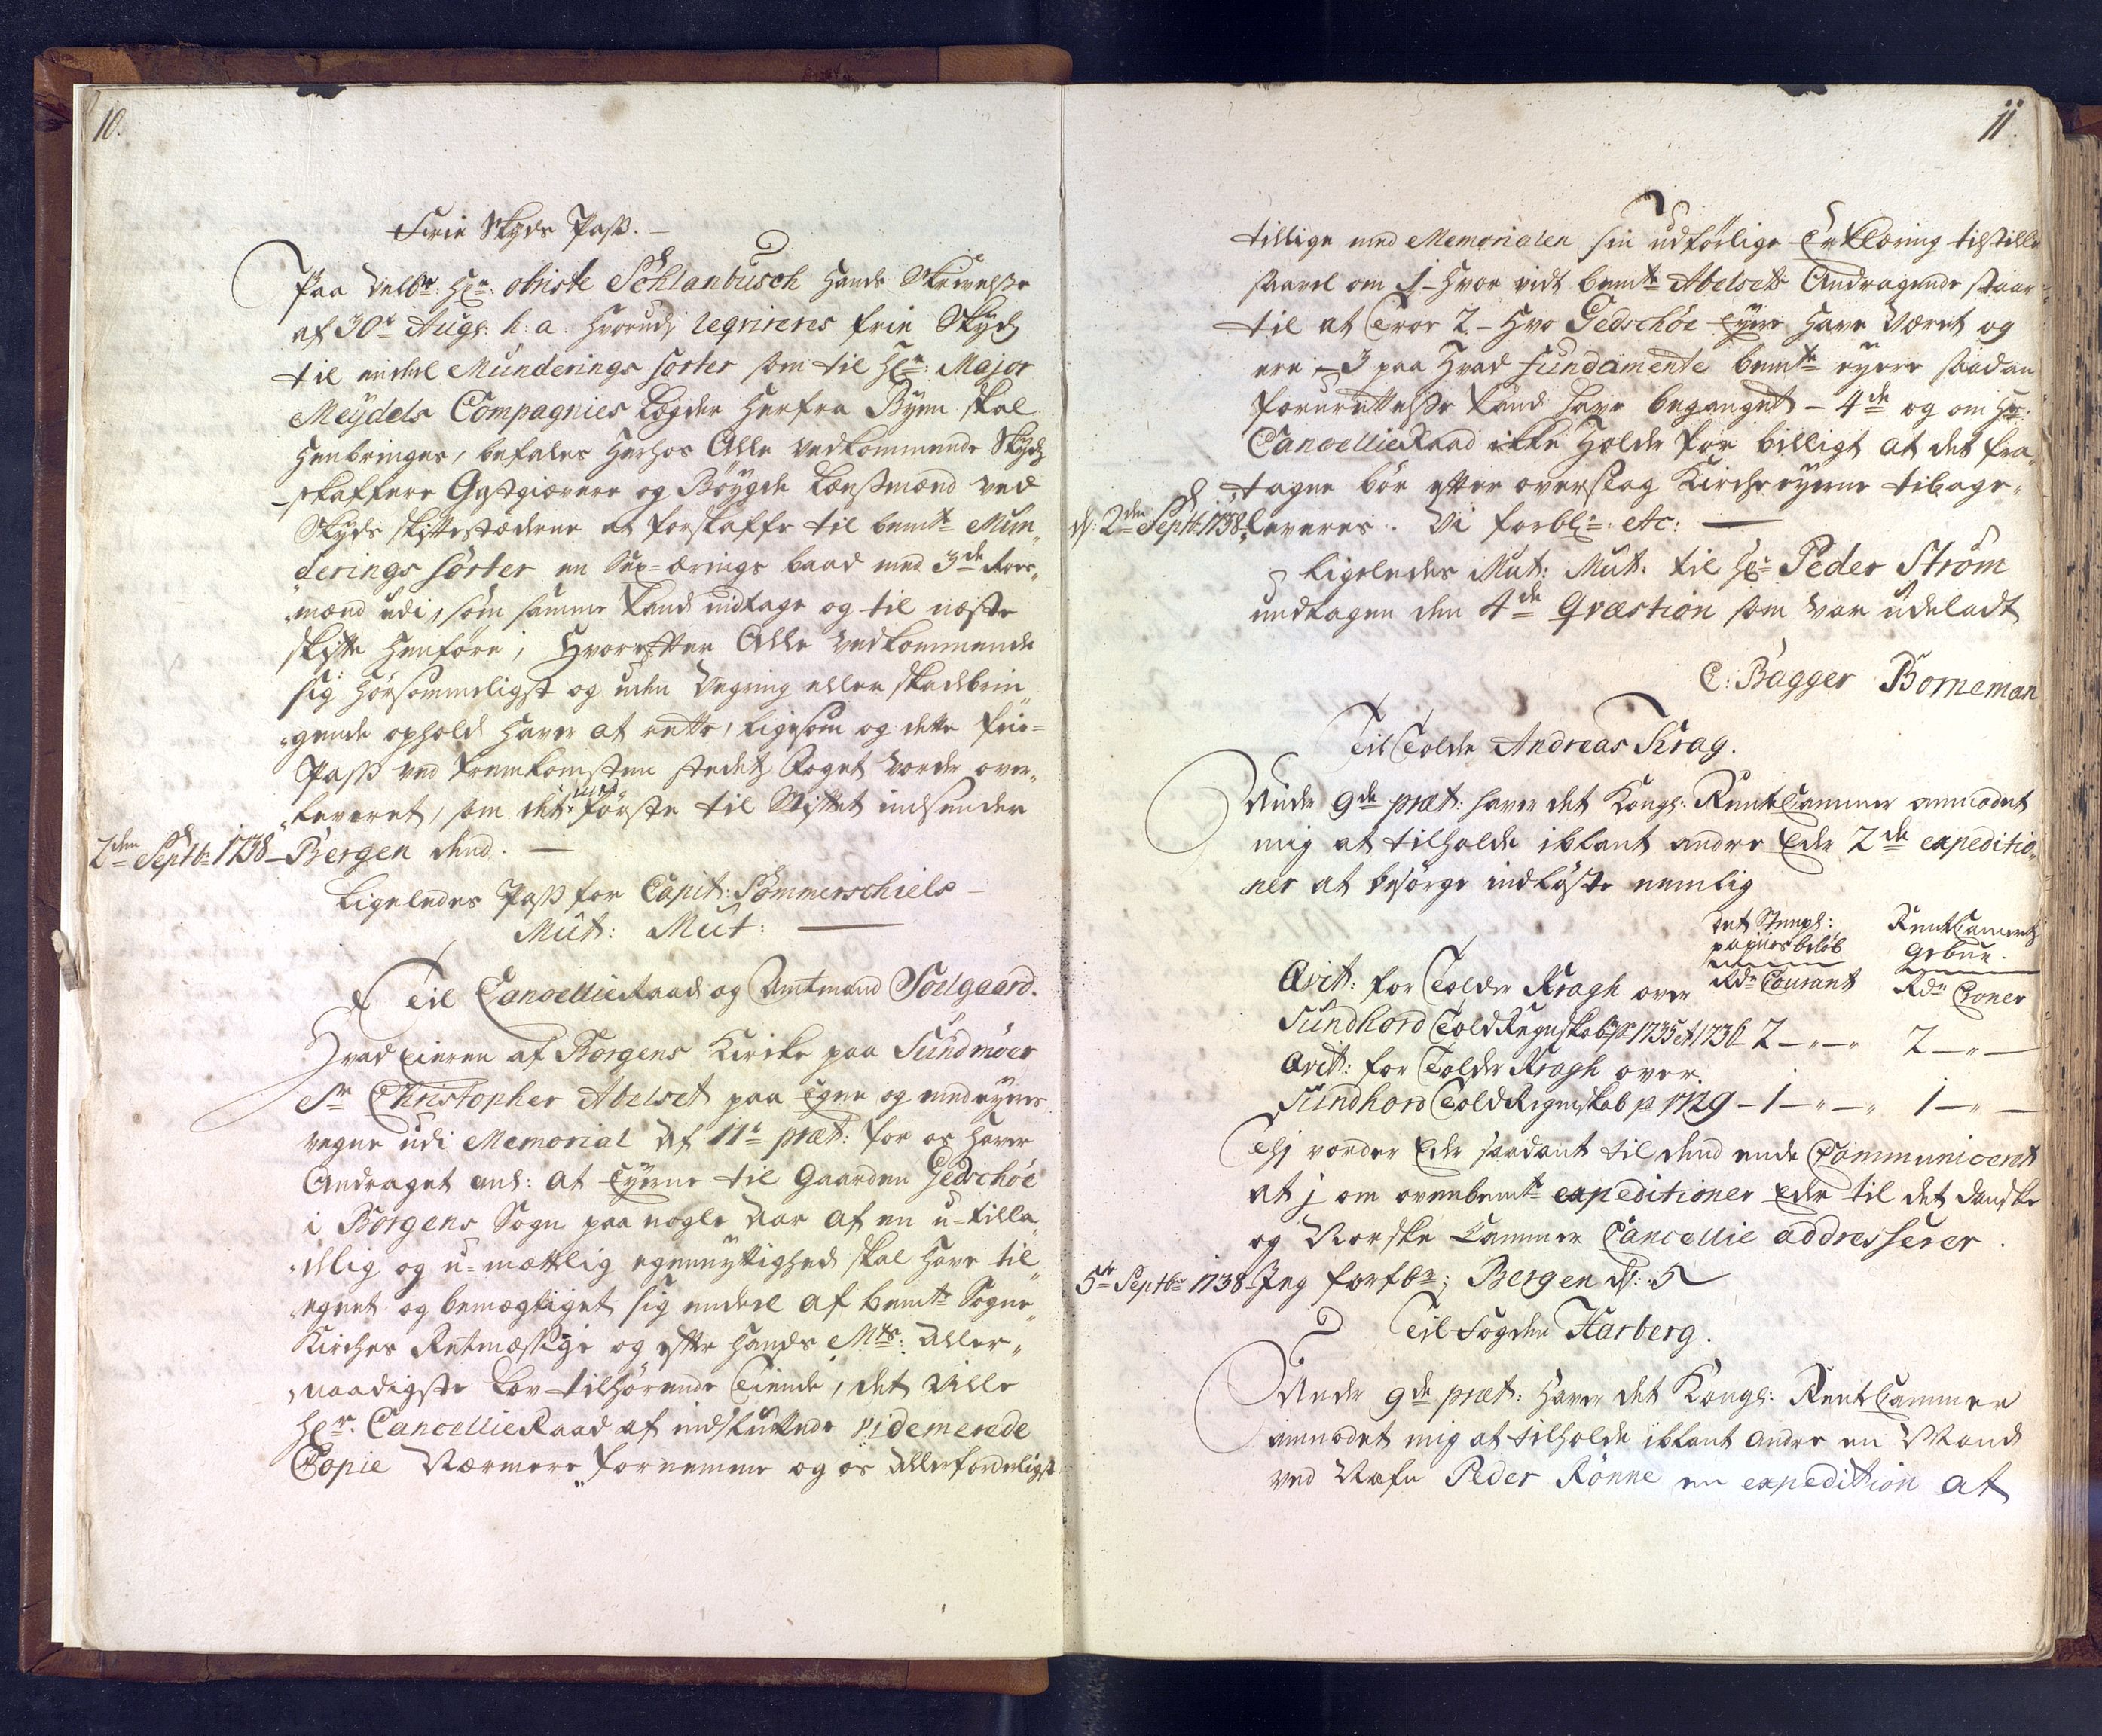 10.
Frie Skyds Pass.
Paa Velbr: Hr: obriste Schlanbusch hands Skrivelse
af 30te Augs: h: a: hvorudj reqvireres frie Skyds
til endeel Munderings sorter som til Hr: Major
Meydels Compagnies Lægder herfra Byen skal
henbringes, befales herhos Alle vedkommende Skyds
skaffere Gästgiævere og Böygde Lænsmænd ved
Skyds skiftestæderne at forskaffe til bemte Mun„
derings sorter en Sex-ærings baad med 3de Fors„
mænd udi, som samme kand indtage og til næste
skifte henföre, Hvorefter Alle vedkommende
sig hörsommeligst og uden Vegring eller skadbrin„
gende ophold haver at rette, ligesom og dette frie-
Pass ved fremkomsten stedets Foget vorder over„
leveret, som det med förste til Stiftet indsender
2den Septbr 1738 Bergen dend.
Ligeledes Pass for Capit: Sommerschiels
Mut: Mut:
Til CancellieRaad og Amtmand Sodgaard.
Hvad Eieren af Borgens Kirke paa Sundmöer
Sr Christopher Abelset paa Egne og medeyeres
vegne udi Memorial Af 11te præt: for os haver
Andraget ands: at Eyerne til Gaarden Gedschöe
i Borgens Sogn paa nogle Aar af en u-tilla„
delig og u-mættelig egennyttighed skal have til„
egnet og bemægtiget sig endeel af bemte Sogne„
Kirches Retmæssige og efter hands Mts: Aller„
naadigste Lov tilhörende Tiende, det ville
Hr: CancellieRaad af indsluttede videmerede
Copie Nærmere fornemme og os Allerforderligst
11.
tillige med Memorialen sin udförlige Erklæring tilstille
saavel om 1- hvor vidt bemte Abelsets Andragende staar
til at Troe 2- Hvo Gedschöe Eyere have Været og
ere - 3 paa Hvad fundamente bemte eyere saadan
forurettelse kand have begaaet - 4de og om Hr:
CancellieRaad ikke Holder for billigt at det fra„
tagne bör efter overslag Kirche eyerne tilbage„
d: 2den Septbr: 1738 leveres. Vi forblr: etc:
Ligeledes Mut: Mut: til Hr Peder Ström
undtagen den 4de Qvæstion som var udeladt
C: Bagger Borneman
Til Tolder Andreas Krag.
Under 9de præt: haver det Kongl: RenteCammer anmodet
mig at tilholde iblant andre Eder 2de expeditio„
ner at besörge indlöste nemlig
det Stempl: papiers beløb RenteCammerets Gebur.
Qvit: for Tolder Kragh over Rdr Courant Rdr Croner
Sundhord ToldRegnskab pro 1735 et 1736 2 - „ - „ 2 - „ -
Qvit: for Tolder Kragh over
Sundhord ToldRegnskab p 1729 - 1 - „ - „ 1 - „ -
Thj vorder Eder saadant til dend ende Communiceret
at j om ovenbemte expeditioner Eder til det danske
og Norske Cammer Cancellie addresserer.
5te Septbr 1738 Jeg forfbr; Bergen d: 5
Til Fogden Harberg.
Under 9de præt: haver det Kongl: RenteCammer
anmodet mig at tilholde iblant andre en Mand
ved Nafn Peder Rönne en expedition at